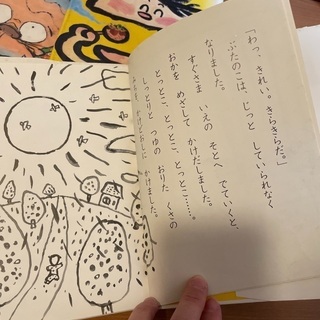 「わっ、きれい。きらきらだ。」
ぶたのこは、じっと していられなく
なりました。
すぐさま いえの そとへ でていくと、
おかを めざして かけだしました。
とっとこ、とっとこ、とっとこ……。
しっとりと つゆの おりた くさの